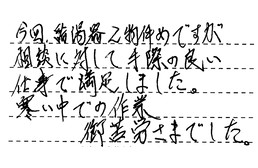 今回、給湯器2物件めですが
相談に対して手際の良い
仕事で満足しました。
寒い中での作業
御苦労さまでした。